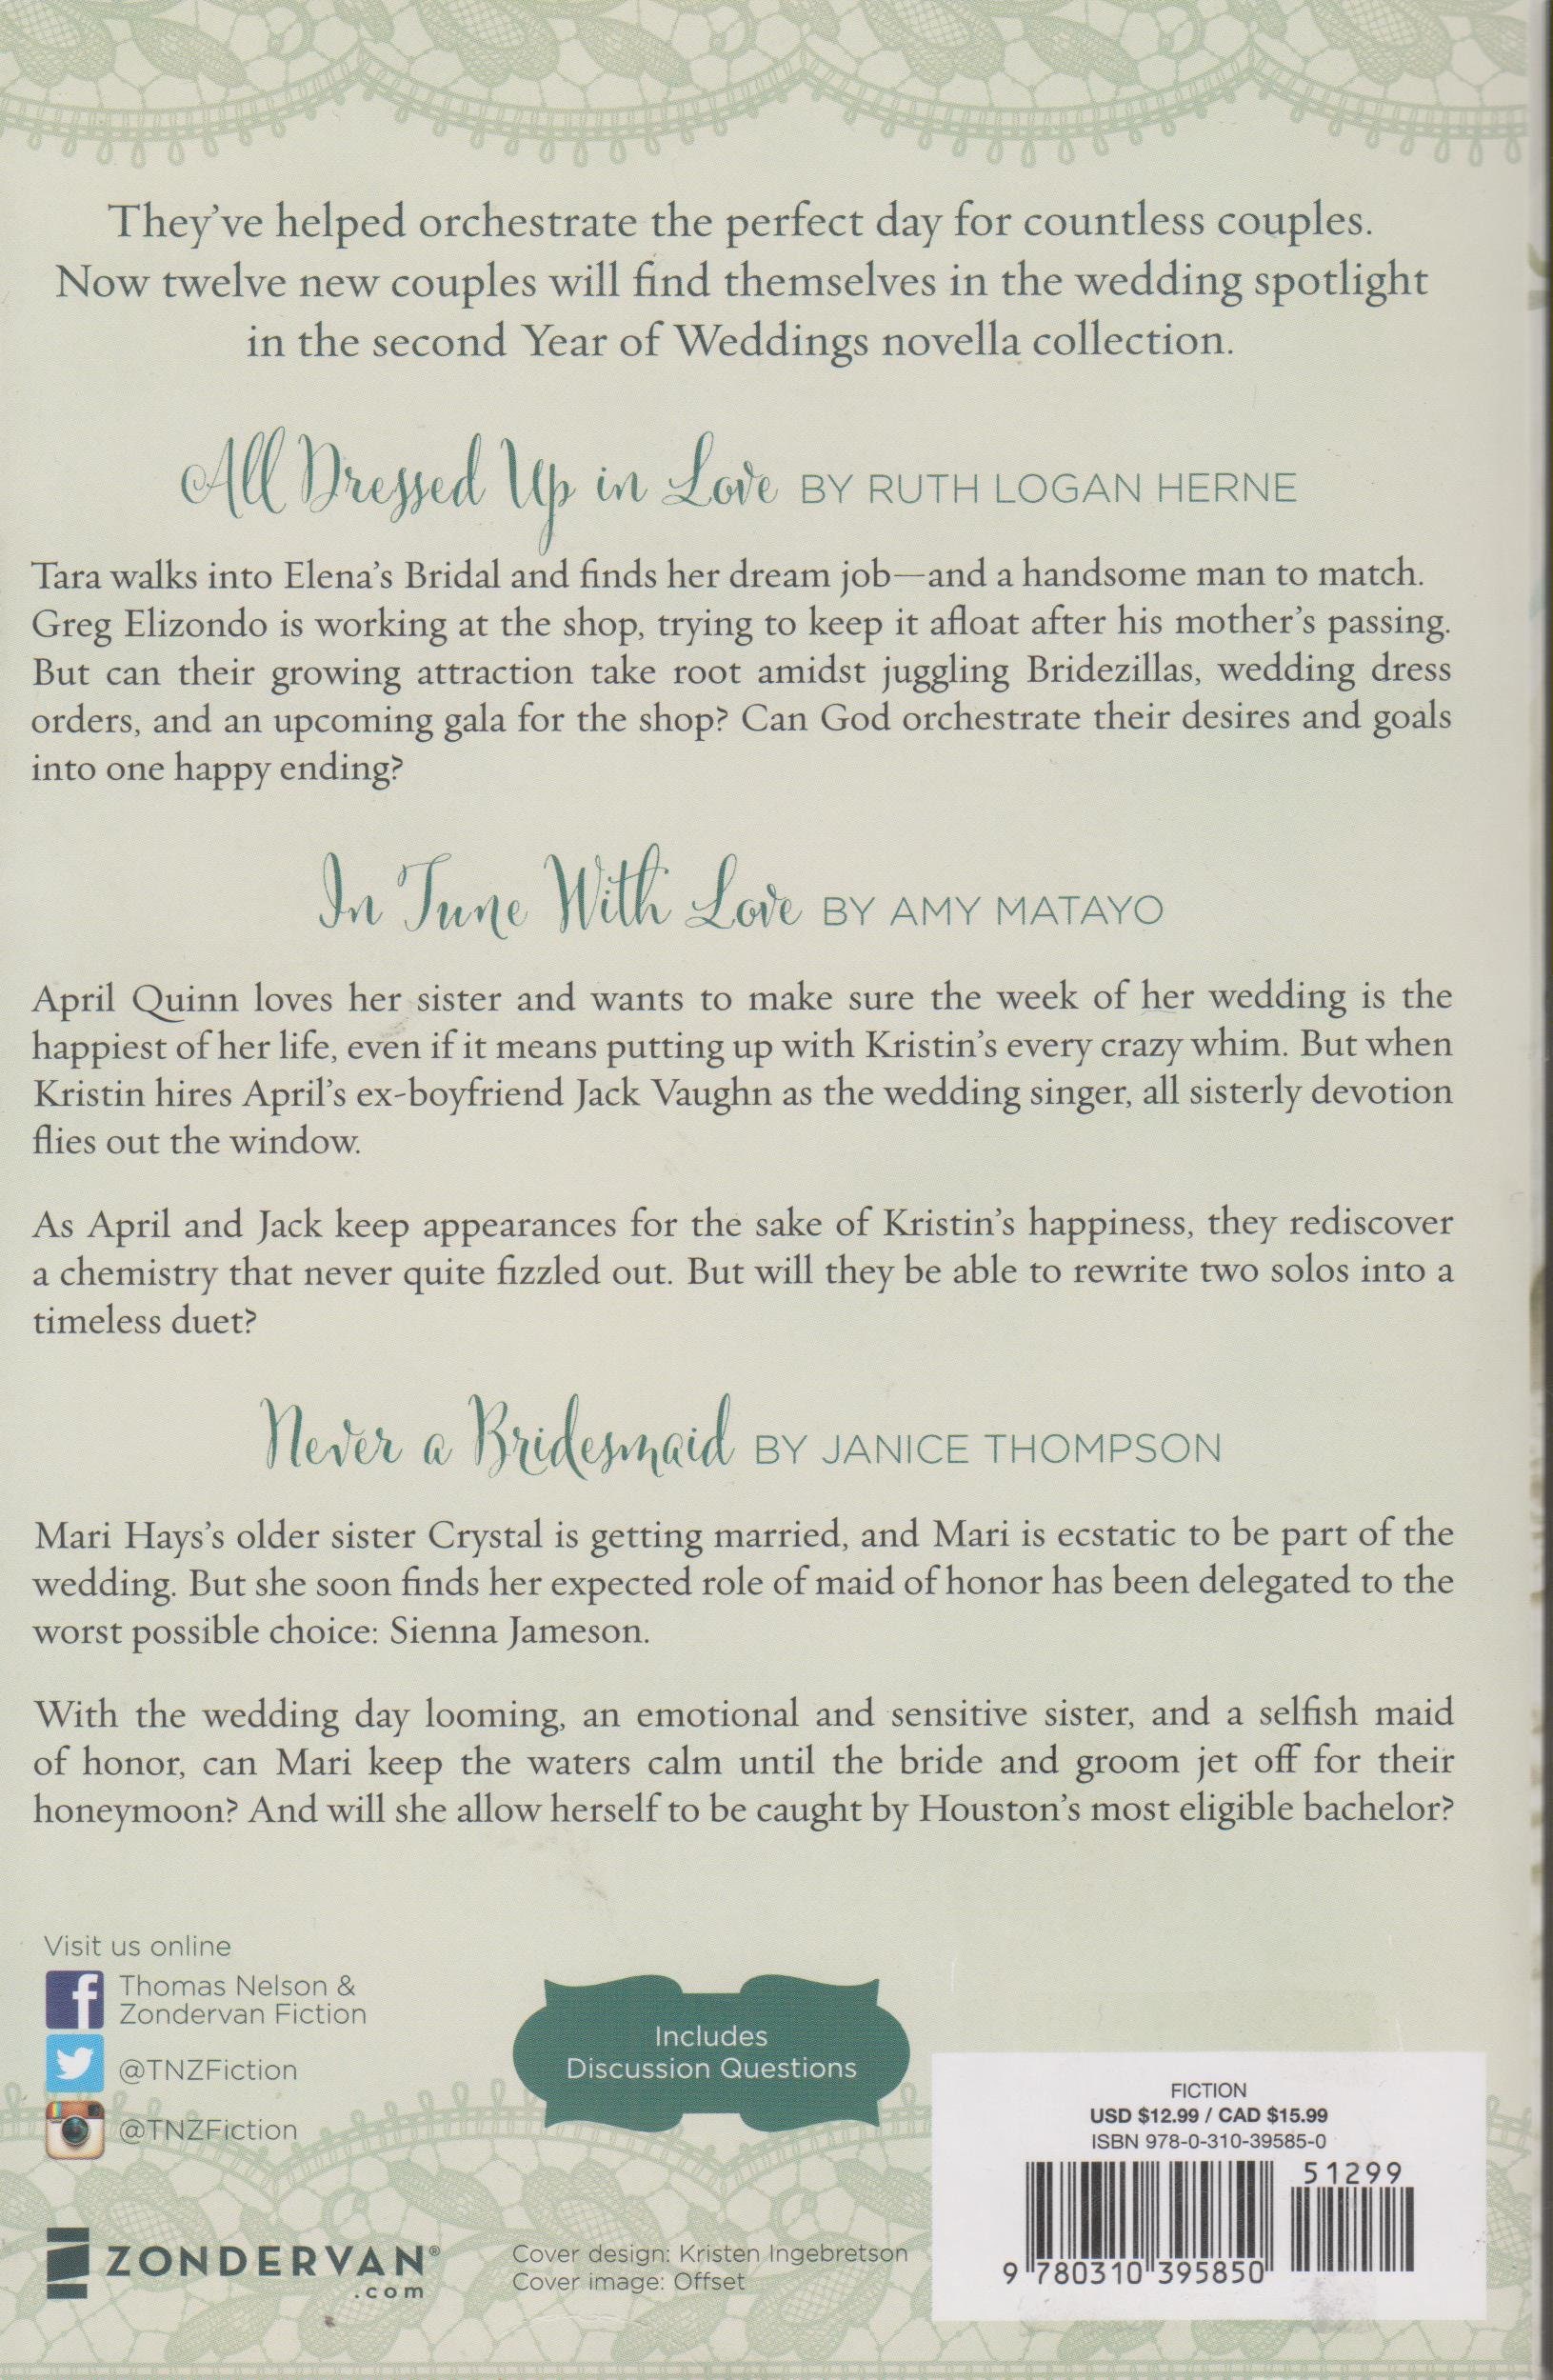 They've helped orchestrate the perfect day for countless couples.
Now twelve new couples will find themselves in the wedding spotlight
in the second Year of Weddings novella collection.
All Dressed Up in Love BY RUTH LOGAN HERNE
Tara walks into Elena's Bridal and finds her dream job—and a handsome man to match.
Greg Elizondo is working at the shop, trying to keep it afloat after his mother's passing.
But can their growing attraction take root amidst juggling Bridezillas, wedding dress
orders, and an upcoming gala for the shop? Can God orchestrate their desires and goals
into one happy ending?
In Tune With Love BY AMY MATAYO
April Quinn loves her sister and wants to make sure the week of her wedding is the
happiest of her life, even if it means putting up with Kristin's every crazy whim. But when
Kristin hires April's ex-boyfriend Jack Vaughn as the wedding singer, all sisterly devotion
flies out the window.
As April and Jack keep appearances for the sake of Kristin's happiness, they rediscover
a chemistry that never quite fizzled out. But will they be able to rewrite two solos into a
timeless duet?
Never a Bridesmaid BY JANICE THOMPSON
Mari Hays's older sister Crystal is getting married, and Mari is ecstatic to be part of the
wedding. But she soon finds her expected role of maid of honor has been delegated to the
worst possible choice: Sienna Jameson.
With the wedding day looming, an emotional and sensitive sister, and a selfish maid
of honor, can Mari keep the waters calm until the bride and groom jet off for their
honeymoon? And will she allow herself to be caught by Houston's most eligible bachelor?
Visit us online
Thomas Nelson &
Zondervan Fiction
@TNZFiction
@TNZFiction
ZONDERVAN®
.com
Includes
Discussion Questions
Cover design: Kristen Ingebretson
Cover image: Offset
FICTION
USD $12.99 / CAD $15.99
ISBN 978-0-310-39585-0
51299
9 780310 395850